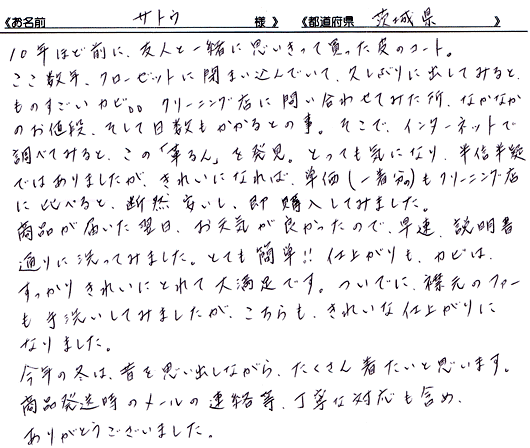 《お名前 サトウ 様 》 《都道府県 茨城県 》
10年ほど前に、友人と一緒に思いきって買った皮のコート。
ここ数年、クローゼットに閉まい込んでいて、久しぶりに出してみると、
ものすごいカビ。。 クリーニング店に問い合わせてみた所、なかなか
のお値段、そして日数もかかるとの事。そこで、インターネットで
調べてみると、この「革るん」を発見。とっても気になり、半信半疑
ではありましたが、きれいになれば、単価(一着分)もクリーニング店
に比べると、断然安いし、即購入してみました。
商品が届いた翌日、お天気が良かったので、早速、説明書
通りに洗ってみました。とても簡単!! 仕上がりも、カビは、
すっかりきれいにとれて大満足です。ついでに、襟元のファー
も手洗いしてみましたが、こちらも、きれいな仕上がりに
なりました。
今年の冬は、昔を思い出しながら、たくさん着たいと思います。
商品発送時のメールの連絡等、丁寧な対応も含め、
ありがとうございました。